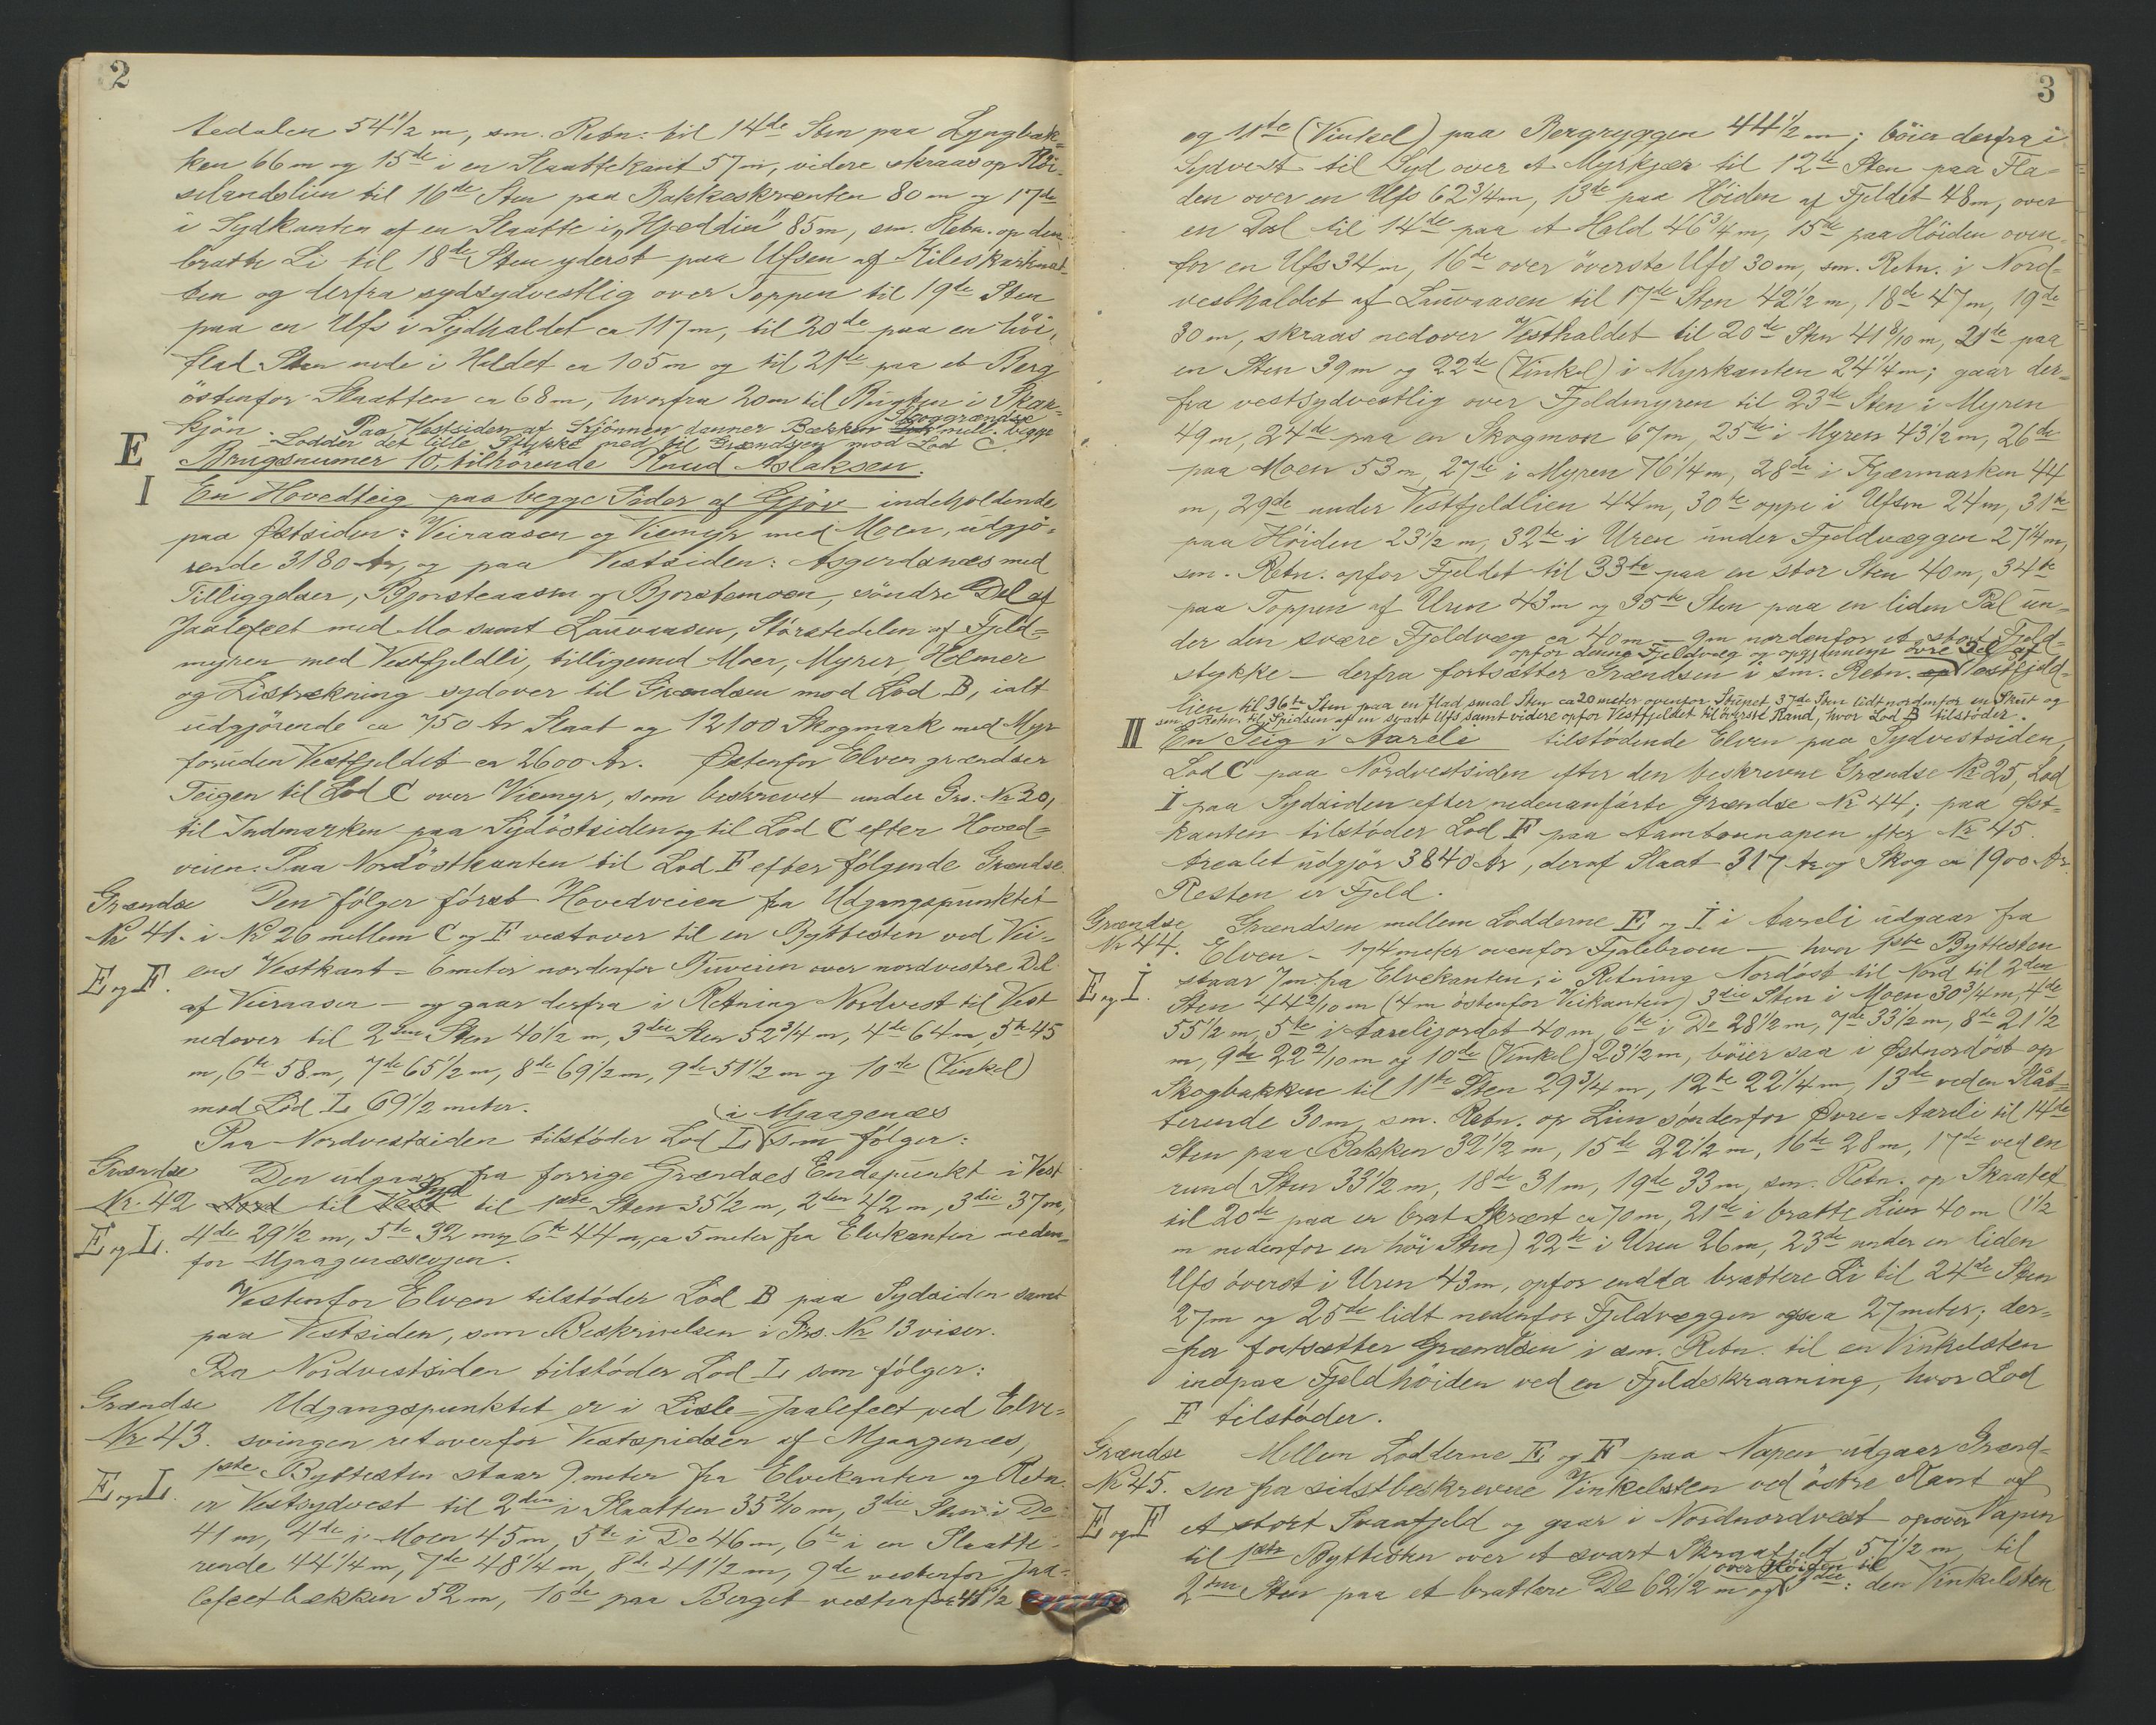 2
tedalen 54 1/2 m, sm. Retn. til 14de Sten paa Lyngbak-
ken 66 m og 15de i en Slaattekant 57 m, videre skraas op Röi-
selandslien til 16de Sten paa Bakkeskrænten 80 m og 17de
i Sydkanten af en Slaatte i „Hæddia" 85 m, sm. Retn. op den
bratte Li til 18de Sten yderst paa Ufsen af
ten og derfra sydsydvestlig over Toppen til 19de Sten
paa en Ufs i Sydhaldet ca 117 m, til 20de paa en höi,
flad Sten nede i Haldet ca 105 m og til 21de paa et Berg
östenfor Slaatten ca 68 m, hvorfra 20 m til Bugten i Skar-
kjön. Paa Vestsiden af Kjönnen danner Bækken Skoggrændse mell. begge
Lodder det lille Stykke ned til Grændsen mod Lod C.
E Brugsnumer 10, tilhörende Knud Aslaksen.
I En Hovedteig paa begge Sider af Gjöv indeholdende
paa Østsiden: Veiraasen og Viemyr med Moen, udgjö-
rende 3180 Ar, og paa Vestsiden: Asgerdsnæs med
Tilliggelser, Bjorsteaasen og Bjorstemoen, söndre Del af
Jaalefeet med Mo samt Lauvaasen, Störstedelen af Fjeld-
myren med Vestfjeldli, tilligemed Moer, Myrer, Holmer
og Listrækning sydover til Grændsen mod Lod B, ialt
udgjörende ca 750 Ar Slaat og 12100 Skogmark med Myr
foruden Vestfjeldet ca 2600 Ar. Østenfor Elven grændser
Teigen til Lod C over Viemyr, som beskrevet under Grs. Nr 20,
til Indmarken paa Sydöstsiden og til Lod C efter Hoved-
veien. Paa Nordöstkanten til Lod F efter fölgende Grændse
Grændse Den fölger först Hovedveien fra Udgangspunktet
Nr 41. i Nr 26 mellem C og F vestover til en Byttesten ved Vei-
E og F. ens Vestkant - 6 meter nordenfor Buveien over nordvestre Del
af Veiraasen - og gaar derfra i Retning Nordvest til Vest
nedover til 2den Sten 40 1/2 m, 3die Sten 52 3/4 m, 4de 64 m, 5te 45
m, 6te 58 m, 7de 65 1/2 m, 8de 69 1/2 m, 9de 51 1/2 m og 10de (Vinkel)
mod Lod L 69 1/2 meter.
Paa Nordvestsiden tilstöder Lod L i Mjaagenæs som fölger:
Grændse Den udgaar fra forrige Grændses Endepunkt i Vest
Nr. 42 Nord til Vest Syd til 1ste Sten 35 1/2 m, 2den 42 m, 3die 37 m,
E og L. 4de 29 1/2 m, 5te 32 m og 6te 44 m, ca 5 meter fra Elvekanten neden-
for Mjaagenæsevjen.
Vestenfor Elven tilstöder Lod B paa Sydsiden samt
paa Vestsiden, som Beskrivelsen i Grs. Nr 13 viser.
Paa Nordvestsiden tilstöder Lod L som fölger:
Grændse Udgangspunktet er i Lisle-Jaalefeet ved Elve-
Nr 43. svingen ret overfor Vestspidsen af Mjaagenæs,
1ste Byttesten staar 9 meter fra Elvekanten og Retn.
E og L. er Vestsydvest til 2den i Slaatten 35 2/10 m, 3die Sten i Do
41 m, 4de i Moen 45 m, 5te i Do 46 m, 6te i en Slaatte-
rende 44 1/4 m, 7de 48 1/4 m, 8de 41 1/2 m, 9de vestenfor Jaa-
lefeetbækken 52 m, 10de paa Berget vestenfor 48 1/2
3
og 11te (Vinkel) paa Bergryggen 44 1/2 m; böier derfra i
Sydvest til Syd over et Myrkjær til 12te Sten paa Fla-
den over en Ufs 62 3/4 m, 13de paa Höiden af Fjeldet 48 m, over
en Dal til 14de paa et Hald 46 3/4 m, 15de paa Höiden oven-
for en Ufs 34 m, 16de over överste Ufs 30 m, sm. Retn. i Nord-
vesthaldet af Lauvaasen til 17de Sten 42 1/2 m, 18de 47 m, 19de
30 m, skraas nedover Vesthaldet til 20de Sten 41 8/10 m, 21de paa
en Sten 39 m og 22de (Vinkel) i Myrkanten 24 1/4 m; gaar der-
fra vestsydvestlig over Fjeldmyren til 23de Sten i Myren
49 m, 24de paa en Skogmoen 67 m, 25te i Myren 43 1/2 m, 26de
paa Moen 53 m, 27de i Myren 76 1/4 m, 28de i Kjærmarken 44
m, 29de under Vestfjeldlien 44 m, 30te oppe i Ufsen 24 m, 31te
paa Höiden 23 1/2 m, 32te i Uren under Fjeldvæggen 27 1/4 m,
sm. Retn. opfor Fjeldet til 33te paa en stor Sten 40 m, 34te
paa Toppen af Uren 43 m og 35te Sten paa en liden Pal un-
der den svære Fjeldvæg ca 40 m - 9 m nordenfor et stort Fjeld-
stykke - derfra fortsætter Grændsen i sm. Retn. opfor denne Fjeldvæg og opgjennem övre Del af Vestfjeld-
lien til 36te Sten paa en flad, smal Sten ca 20 meter ovenfor Stupet, 37de Sten lidt nordenfor en Skut og
sm. Retn. til Spidsen af en svart Ufs samt videre opfor Vestfjeldet til överste Rand, hvor Lod B tilstöder.
II En Teig i Aareli tilstödende Elven paa Sydvestsiden,
Lod C paa Nordvestsiden efter den beskrevne Grændse Nr 25, Lod
I paa Sydsiden efter nedenanförte Grændse Nr 44; paa Øst-
kanten tilstöder Lod F paa efter Nr 45.
Arealet udgjör 3840 Ar, deraf Slaat 317 Ar og Skog ca 1900 Ar.
Resten er Fjeld.
Grændse Grændsen mellem Lodderne E og I i Aareli udgaar fra
Nr 44. Elven - 174 meter ovenfor Fjelebroen - hvor 1ste Byttesten
E og I. staar 7 m fra Elvekanten, i Retning Nordöst til Nord til 2den
Sten 44 2/10 m (4 m östenfor Veikanten) 3die Sten i Moen 30 3/4 m, 4de
55 1/2 m, 5te i Aarelijordet 40 m, 6te i Do 28 1/2 m, 7de 33 1/2 m, 8de 21 1/2
m, 9de 22 2/10 m og 10de (Vinkel) 23 1/2 m, böier saa i Østnordöst op
Skogbakken til 11te Sten 29 3/4 m, 12te 22 1/4 m, 13de ved en Slåt-
terende 30 m, sm. Retn. op Lien söndenfor Øvre-Aareli til 14de
Sten paa Bakken 32 1/2 m, 15de 22 1/2 m, 16de 28 m, 17de ved en
rund Sten 33 1/2 m, 18de 31 m, 19de 33 m, sm. Retn. op Skaatet
til 20de paa en brat Skrænt ca 70 m, 21de i bratte Lien 40 m (1 1/2
m nedenfor en höi Sten) 22de i Uren 26 m, 23de under en liden
Ufs överst i Uren 43 m, opfor endda brattere Li til 24de Sten
27 m og 25de lidt nedenfor Fjeldvæggen ogsaa 27 meter; der-
fra fortsætter Grændsen i sm. Retn. til en Vinkelsten
indpaa Fjeldhöiden ved en Fjeldskraaning, hvor Lod
F tilstöder.
Grændse Mellem Lodderne E og F paa Napen udgaar Grænd-
Nr 45. sen fra sidstbeskrevne Vinkelsten ved östre Kant af
E og F et stort Svaafjeld og gaar i Nordnordvest opover Napen
til 1ste Byttesten over et svart 57 1/2 m, til
2den Sten paa et brattere Do 62 1/2 m og over Höiden til 3die: den Vinkelsten